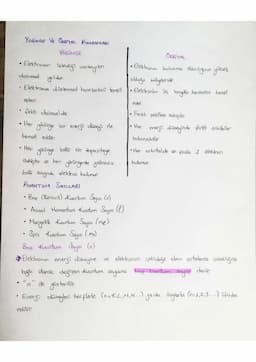 Yörünge Ve Orbital Kavramları
YÖRÜNGE
• Elektronun izlediği varsayılan
dairesel yoldur.
• Elektronun düzlemsel hareketini temsil
eder.
• Şekli daireseldir.
• Her yörünge bir enerji düzeyi ile
temsil edilir.
• Her yörünge belli bir kapasiteye
sahiptir ve her yörüngede
belli sayıda elektron bulunur.
ORBİTAL
• Elektronun bulunma olasılığının yüksek
olduğu bölgelerdir.
• Elektronun üç boyutlu hareketini temsil
eder.
• Farklı şekillere sahiptir.
• Her enerji düzeyinde farklı orbitaller
bulunabilir.
• Her orbitalde en fazla 2 elektron
bulunur.
KUANTUM SAYILARI
• Baş (Birincil) Kuantum Sayısı (n)
• Açısal Momentum Kuantum Sayısı (ℓ)
• Manyetik Kuantum Sayısı (mℓ)
• Spin Kuantum Sayısı (ms)
Baş Kuantum Sayısı (n)
Elektronun enerji düzeyine ve elektronun çekirdeğe olan ortalama uzaklığına
bağlı olarak değişen kuantum sayısına baş kuantum sayısı denir.
• "n" ile gösterilir.
• Enerji düzeyleri harflerle (n=K,L,M,N...) ya da sayılarla (n=1,2,3...) ifade
edilir.